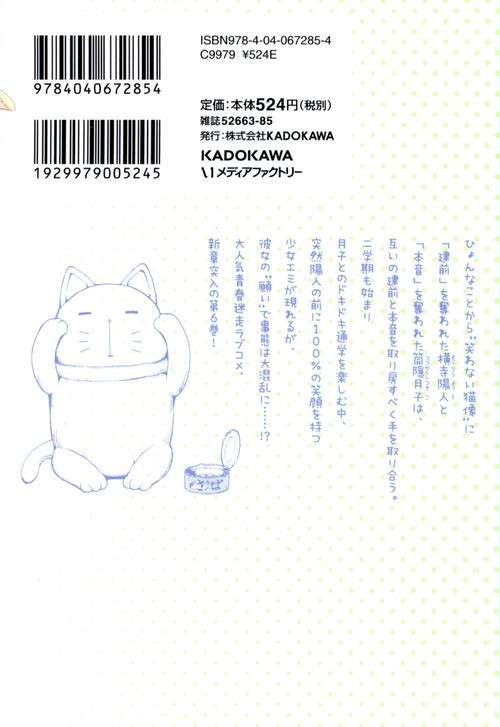 ISBN978-4-04-067285-4
C9979 ¥524E
9784040672854
定価:本体524円(税別)
雑誌52663-85
発行:株式会社KADOKAWA
KADOKAWA
メディアファクトリー
1929979005245
ひょんなことから"笑わない猫像"に
「建前」を奪われた横寺陽人と
「本音」を奪われた筒隠月子は、
互いの建前と本音を取り戻すべく手を取り合う。
二学期も始まり
月子とのドキドキ通学を楽しむ中、
突然陽人の前に100%の笑顔を持つ
少女エミが現れるが、
彼女の"願い"で事態は大混乱に……!?
大人気青春迷走ラブコメ、
新章突入の第6巻!
さば